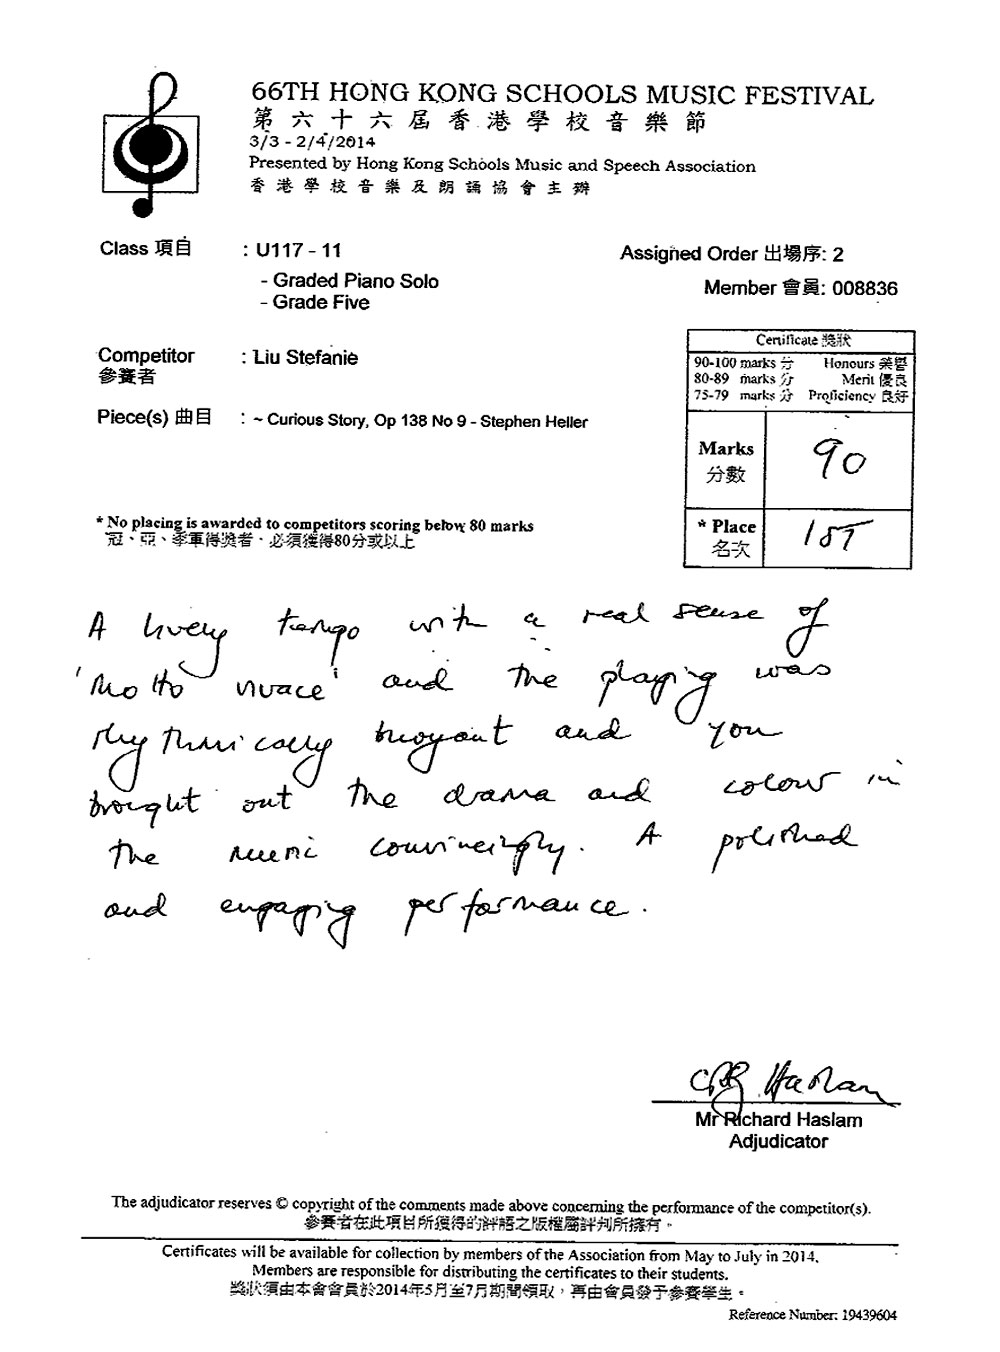 66TH HONG KONG SCHOOLS MUSIC FESTIVAL
第六十六屆香港學校音樂節
3/3 - 2/4/2014
Presented by Hong Kong Schools Music and Speech Association
香港學校音樂及朗誦協會主辦
Class 項目 : U117 - 11
Assigned Order 出場序: 2
- Graded Piano Solo
- Grade Five
Member 會員: 008836
Competitor : Liu Stefanie
參賽者
Piece(s) 曲目 : ~ Curious Story, Op 138 No 9 - Stephen Heller
Certificate 獎狀
90-100 marks 分 Honours 榮譽
80-89 marks 分 Merit 優良
75-79 marks 分 Proficiency 良好
Marks 90
分數
* Place 1ST
名次
* No placing is awarded to competitors scoring below 80 marks
冠、亞、季軍得獎者，必須獲得80分或以上
A lively tango with a real sense of
'Molto vivace' and the playing was
rhythmically buoyant and you
brought out the drama and colour in
the music convincingly. A polished
and engaging performance.
Haslam
Mr Richard Haslam
Adjudicator
The adjudicator reserves © copyright of the comments made above concerning the performance of the competitor(s).
參賽者在此項目所獲得的評語之版權屬評判所擁有。
Certificates will be available for collection by members of the Association from May to July in 2014.
Members are responsible for distributing the certificates to their students.
獎狀須由本會會員於2014年5月至7月期間領取，再由會員發予參賽學生。
Reference Number: 19439604